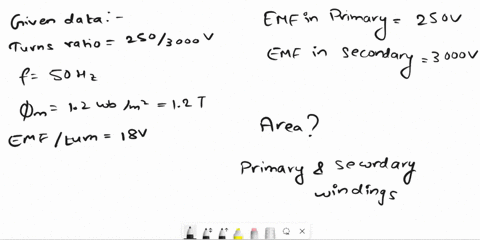 Given data:-
Turns ratio = 250/3000V
f = 50Hz
Φm = 1.2 wb/m² = 1.2 T
EMF/turn = 18V
EMF in Primary = 250V
EMF in secondary = 3000V
Area?
Primary & secordary
windings